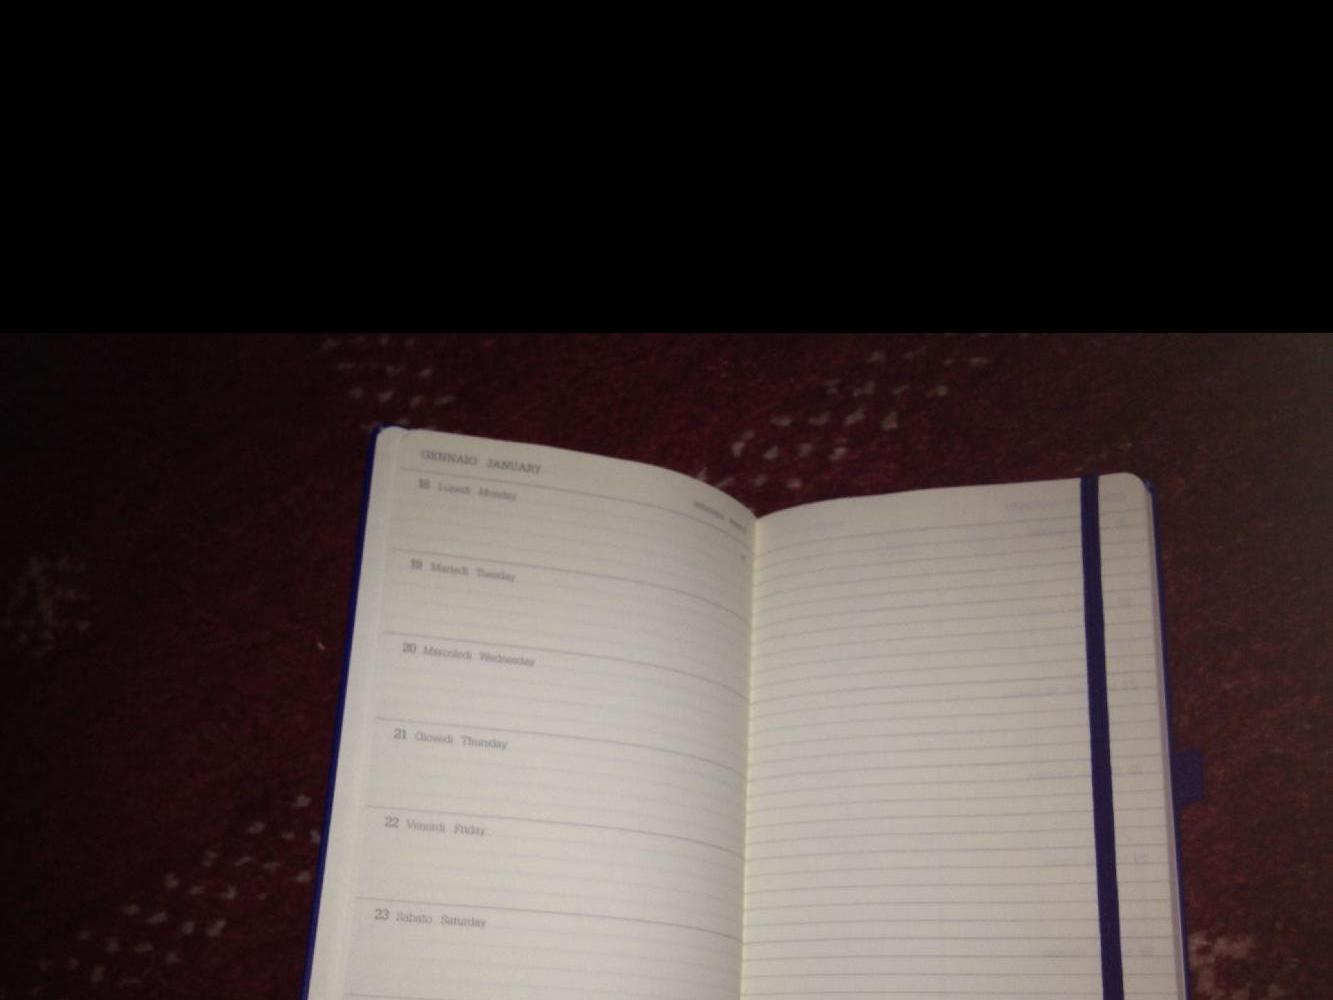 GENNAIO JANUARY
18 Lunedì Monday
19 Martedì Tuesday
20 Mercoledì Wednesday
21 Giovedì Thursday
22 Venerdì Friday
23 Sabato Saturday